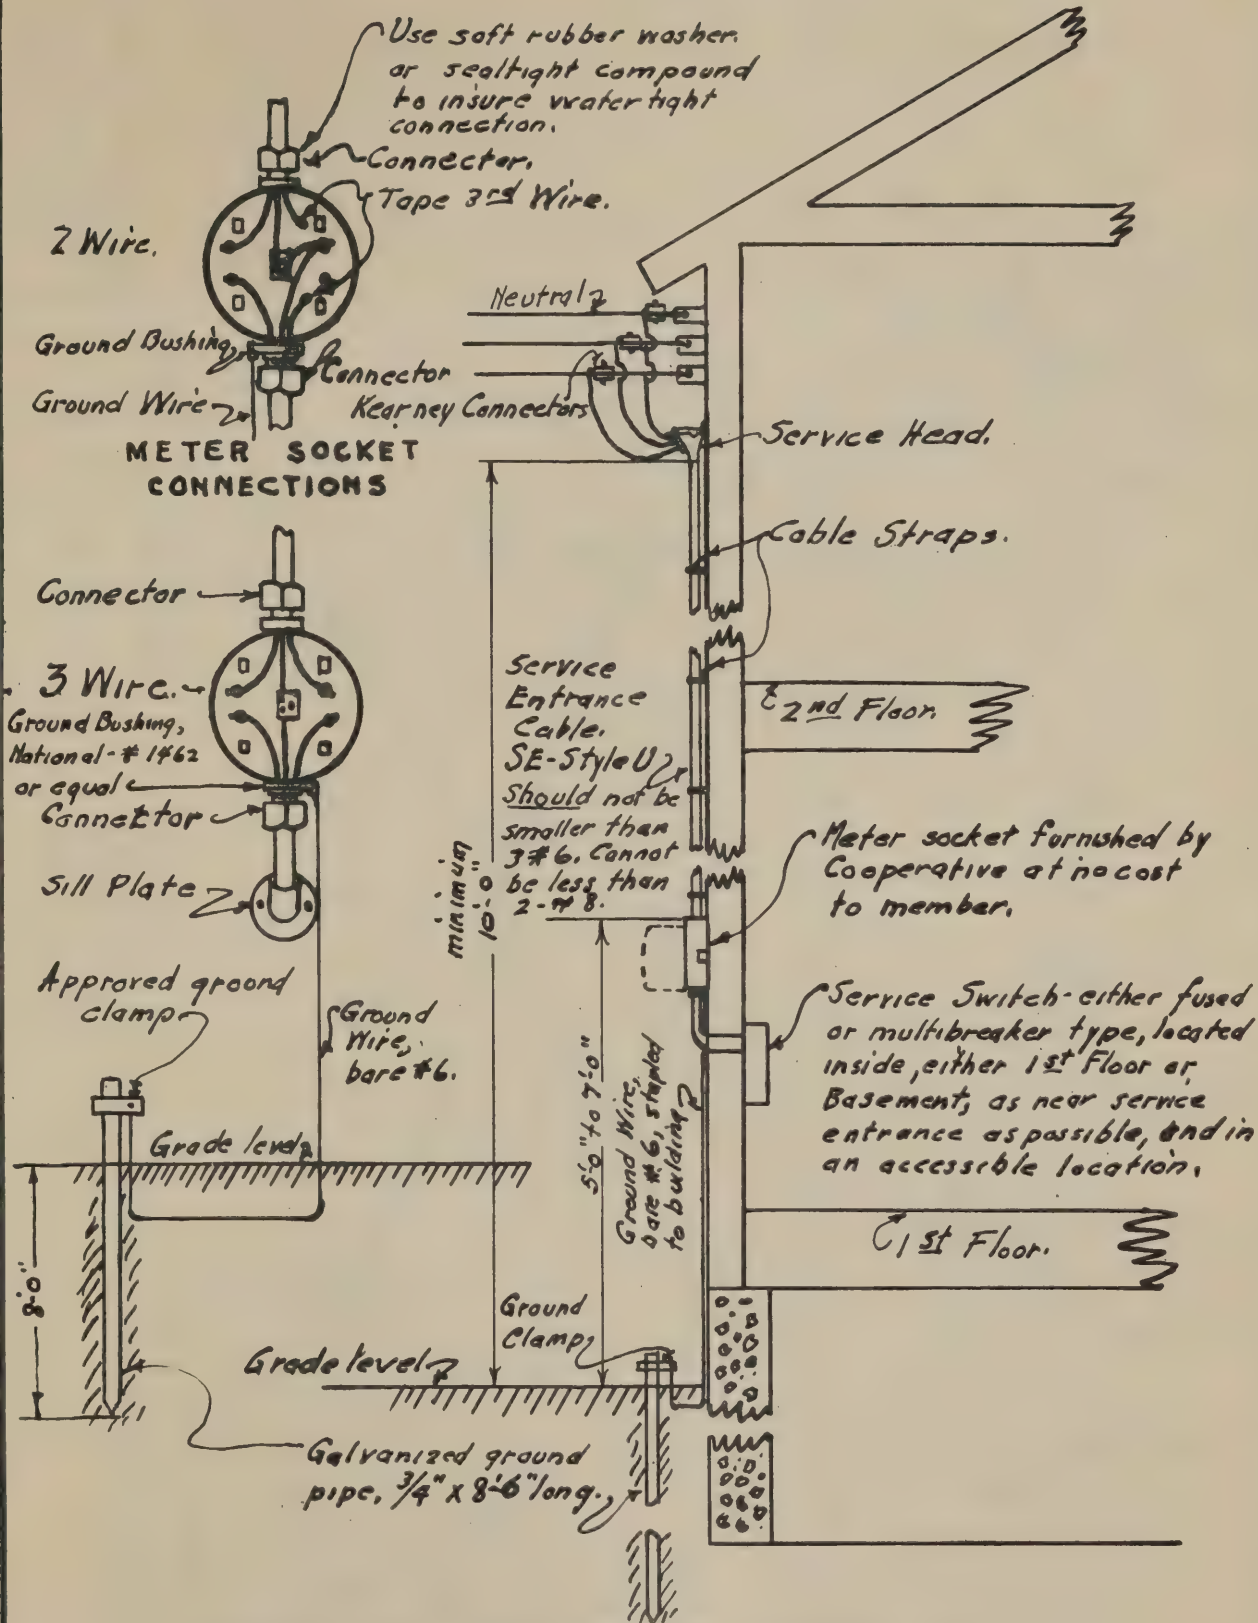 Use soft rubber washer.
or sealtight compound
to insure watertight
connection.
Connector.
Tape 3rd Wire.
2 Wire.
Ground Bushing
Connector
Ground Wire
METER SOCKET
CONNECTIONS
Neutral
Kearney Connectors
Service Head.
Cable Straps.
Connector
3 Wire.
Ground Bushing,
National-# 1462
or equal
Connector
Sill Plate
Approved ground
clamp
Ground
Wire,
bare #6.
Grade level
8'-0"
Galvanized ground
pipe, 3/4" x 8'-6" long.
Service
Entrance
Cable.
SE-Style U
Should not be
smaller than
3#6. Cannot
be less than
2-#8.
minimum
10'-0"
2nd Floor.
Meter socket furnished by
Cooperative at no cost
to member.
Service Switch-either fused
or multibreaker type, located
inside, either 1st Floor or
Basement, as near service
entrance as possible, and in
an accessible location.
5'-0" to 7'-0"
Ground Wire,
bare #6, stapled
to building
1st Floor.
Ground
Clamp
Grade level